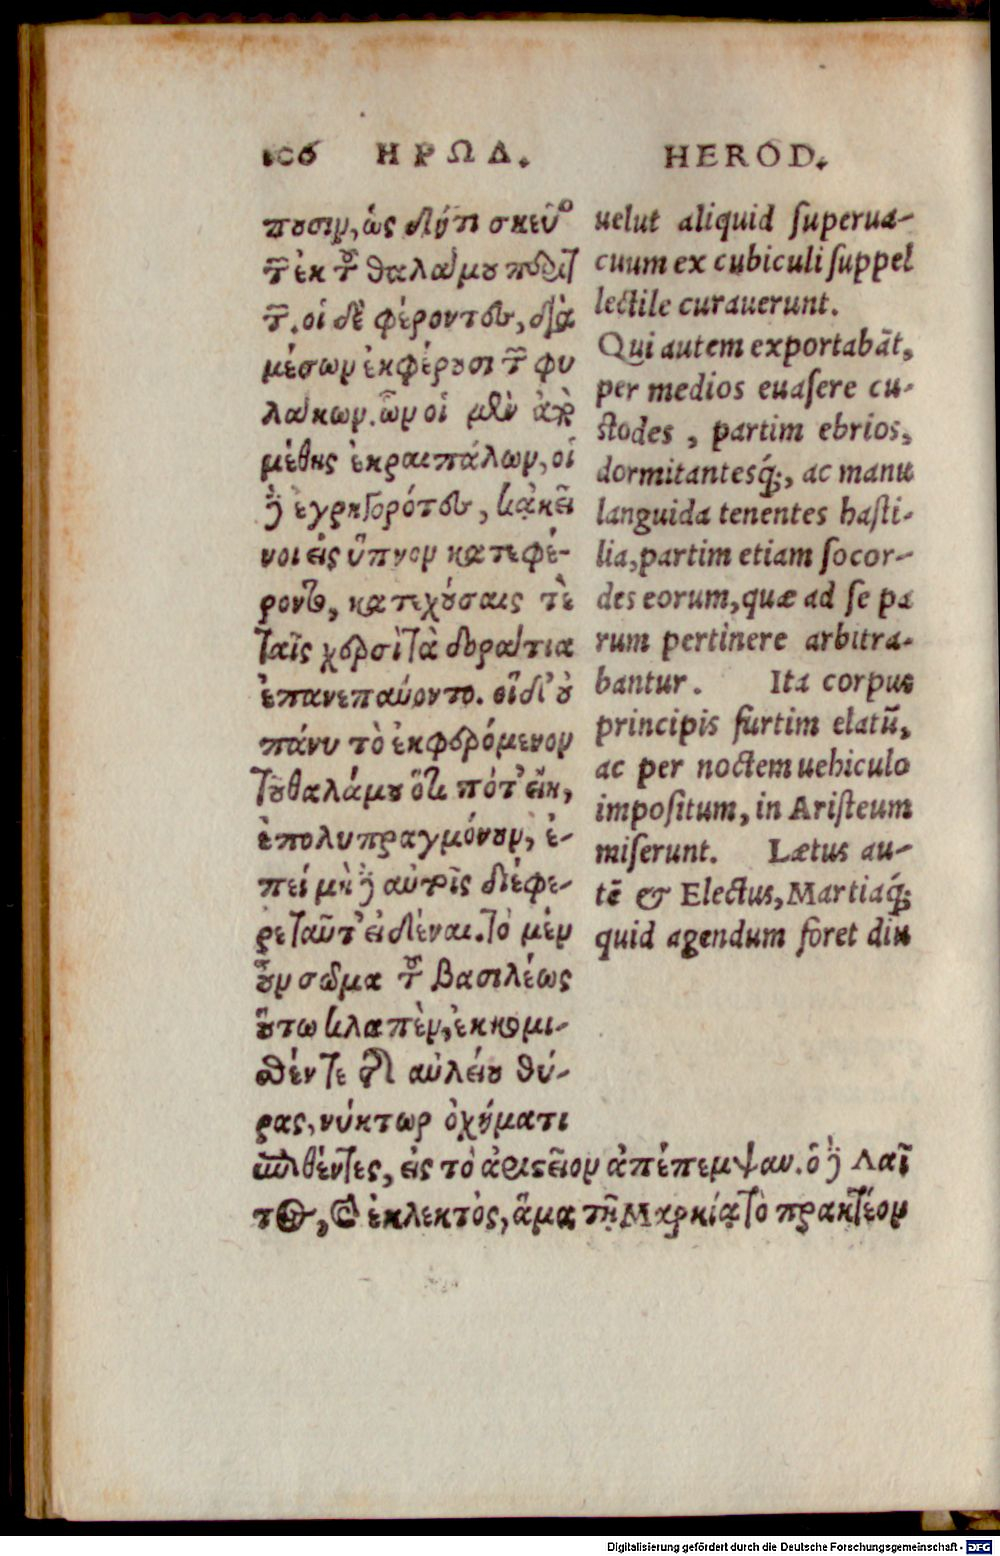 106 ΗΡΩΔ.
πουσιν, ὡς δή τι σκεῦος
τῶν ἐκ τοῦ θαλάμου περιτ
τῶν. οἱ δὲ φέροντες, διὰ
μέσων ἐκφέρουσι τῶν φυ
λάκων. ὧν οἱ μὲν ἀπὸ
μέθης ἐκραιπάλων, οἱ
δὲ ἐγρηγορότες, κἀκεῖ
νοι εἰς ὕπνον κατεφέ-
ροντο, κατεχούσαις τὲ
ταῖς χερσὶ τὰ δοράτια
ἐπανεπαύοντο. οἵδ' οὐ
πάνυ τὸ ἐκφερόμενον
τοῦ θαλάμου ὅτι πότ' εἴη,
ἐπολυπραγμόνουν, ἐ-
πεί μὴ δὲ αὐτοῖς διέφε-
ρε ταῦτ' εἰδέναι. τὸ μὲν
οὖν σῶμα τοῦ βασιλέως
οὕτω κλαπὲν, ἐκκομι-
σθέν τε τῆς αὐλείου θύ-
ρας, νύκτωρ ὀχήματι
ἐπιθέντες, εἰς τὸ ἀριστεῖον ἀπέπεμψαν. ὁ δὲ Λαῖ
τος, καὶ ἐκλεκτὸς, ἅμα τῇ Μαρκίᾳ τὸ πρακτέον
HEROD.
uelut aliquid ſuperua-
cuum ex cubiculi ſuppel
lectile curauerunt.
Qui autem exportabāt,
per medios euaſere cu-
ſtodes, partim ebrios,
dormitantesq́;, ac manu
languida tenentes haſti-
lia, partim etiam ſocor-
des eorum, quæ ad ſe pa
rum pertinere arbitra-
bantur. Ita corpus
principis furtim elatū,
ac per noctem uehiculo
impoſitum, in Ariſteum
miſerunt. Lætus au-
tē & Electus, Martiaq́;
quid agendum foret diu
Digitalisierung gefördert durch die Deutsche Forschungsgemeinschaft - DFG